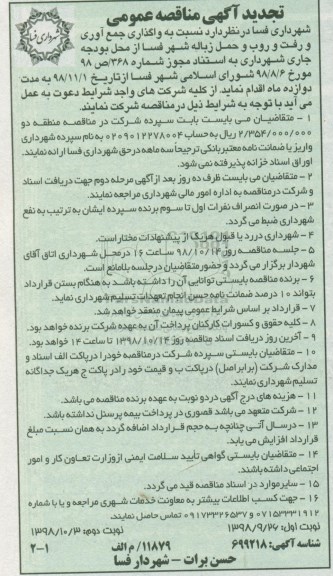 تجدید آگهی مناقصه عمومی
شهرداری فسا
شهرداری فسا در نظر دارد نسبت به واگذاری جمع آوری
و رفت و روب و حمل زباله شهر فسا از محل بودجه
جاری شهرداری به استناد مجوز شماره ۳۶۸/ص ۹۸
مورخ ۹۸/۸/۶ شورای اسلامی شهر فسا از تاریخ ۹۸/۱۱/۱ به مدت
دوازده ماه اقدام نماید. از کلیه شرکت های واجد شرایط دعوت به عمل
می آید با توجه به شرایط ذیل در مناقصه شرکت نمایند.
۱ - متقاضیان می بایست بابت سپرده شرکت در مناقصه منطقه دو
۲/۳۵۴/۰۰۰/۰۰۰ ریال به حساب ۰۲۰۹۰۱۲۲۷۸۰۰۴ به نام سپرده شهرداری
واریز یا ضمانت نامه معتبر بانکی ترجیحاً سه ماهه در حق شهرداری فسا ارائه نمایند.
اوراق اسناد خزانه پذیرفته نمی شود.
۲ - متقاضیان می بایست ظرف ده روز بعد از آگهی مرحله دوم جهت دریافت اسناد
و شرکت در مناقصه به اداره امور مالی شهرداری مراجعه نمایند.
۳ - در صورت انصراف نفرات اول تا سوم برنده سپرده ایشان به ترتیب به نفع
شهرداری ضبط می گردد.
۴ - شهرداری در رد یا قبول هر یک از پیشنهادات مختار است.
۵ - جلسه مناقصه روز ۹۸/۱۰/۱۴ ساعت ۱۶ در محل شهرداری اتاق آقای
شهردار برگزار می گردد و حضور متقاضیان در جلسه بلامانع است.
۶ - برنده مناقصه بایستی توانایی آن را داشته باشد به هنگام بستن قرارداد
بتواند ۱۰ درصد ضمانت نامه حسن انجام تعهدات تسلیم شهرداری نماید.
۷ - قرارداد بر اساس شرایط عمومی پیمان منعقد خواهد شد.
۸ - کلیه حقوق و کسورات کارکنان پرداخت آن به عهده شرکت برنده خواهد بود.
۹ - آخرین روز دریافت اسناد مناقصه روز ۱۳۹۸/۱۰/۱۴ تا ساعت ۱۴ خواهد بود.
۱۰ - متقاضیان بایستی سپرده شرکت در مناقصه خود را در پاکت الف اسناد و
مدارک شرکت (برابر اصل) در پاکت ب و قیمت خود را در پاکت ج هریک جداگانه
تسلیم شهرداری نمایند.
۱۱ - هزینه های درج آگهی در دو نوبت به عهده برنده مناقصه می باشد.
۱۲ - شرکت متعهد می باشد قصوری در پرداخت بیمه پرسنل نداشته باشد.
۱۳ - در سال آتی چنانچه به حجم قرارداد اضافه گردد به همان نسبت مبلغ
قرارداد افزایش می یابد.
۱۴ - متقاضیان بایستی گواهی تأیید سلامت ایمنی از وزارت تعاون کار و امور
اجتماعی داشته باشند.
۱۵ - سایر موارد در اسناد مناقصه قید می گردد.
۱۶ - جهت کسب اطلاعات بیشتر به معاونت خدمات شهری مراجعه و یا با شماره
۰۷۱۵۳۳۳۱۹۱۲ و ۰۹۱۷۳۳۲۶۵۳۷ تماس حاصل نمایند.
نوبت اول: ۱۳۹۸/۹/۲۶ نوبت دوم: ۱۳۹۸/۱۰/۳
شناسه آگهی: ۶۹۹۲۱۸ ۱۱۸۷۹/ م الف ۲-۱
حسن برات - شهردار فسا